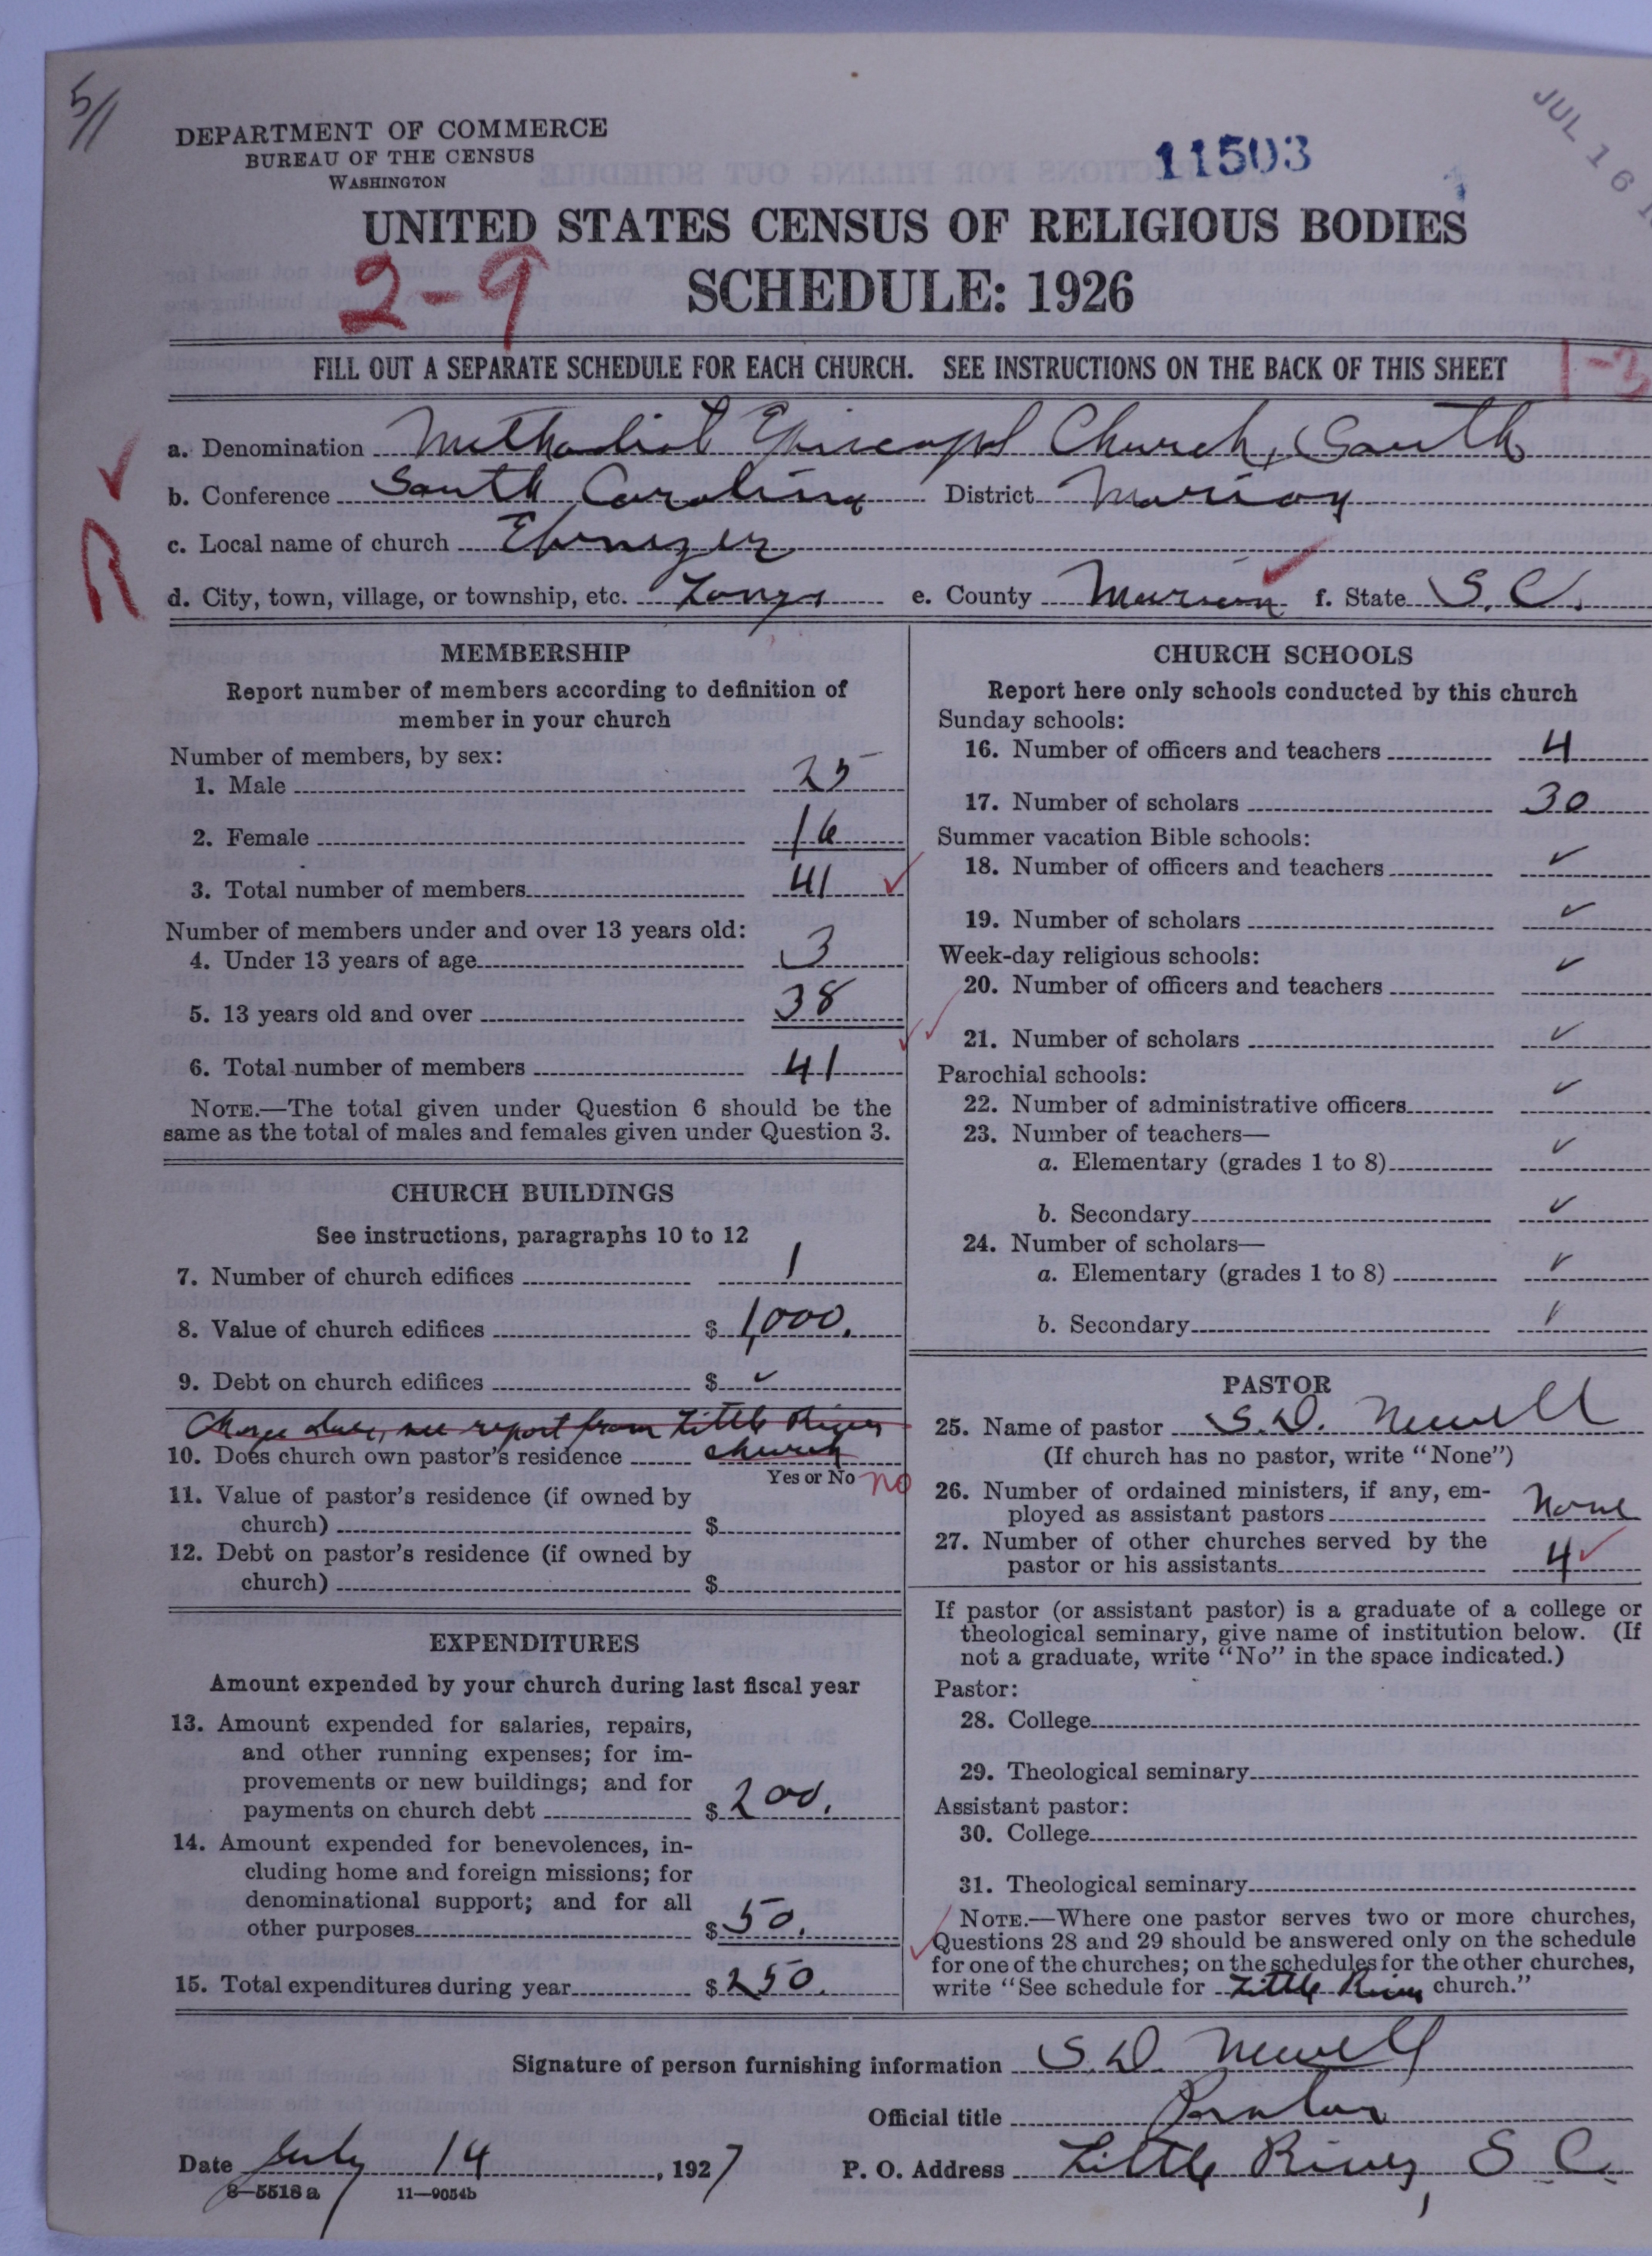 5/1
DEPARTMENT OF COMMERCE
BUREAU OF THE CENSUS
WASHINGTON
11503
JUL 16
UNITED STATES CENSUS OF RELIGIOUS BODIES
SCHEDULE: 1926
2-9
FILL OUT A SEPARATE SCHEDULE FOR EACH CHURCH. SEE INSTRUCTIONS ON THE BACK OF THIS SHEET
1-3
a. Denomination Methodist Episcopal Church, South
b. Conference South Carolina District Marion
R
c. Local name of church Ebenezer
d. City, town, village, or township, etc. Longs e. County Marion f. State S.C.
MEMBERSHIP
Report number of members according to definition of
member in your church
Number of members, by sex:
1. Male 25
2. Female 16
3. Total number of members 41
Number of members under and over 13 years old:
4. Under 13 years of age 3
5. 13 years old and over 38
6. Total number of members 41
NOTE.—The total given under Question 6 should be the
same as the total of males and females given under Question 3.
CHURCH BUILDINGS
See instructions, paragraphs 10 to 12
7. Number of church edifices 1
8. Value of church edifices $ 1,000.
9. Debt on church edifices $ ✓
see report from Little River
10. Does church own pastor's residence church
Yes or No no
11. Value of pastor's residence (if owned by
church) $
12. Debt on pastor's residence (if owned by
church) $
EXPENDITURES
Amount expended by your church during last fiscal year
13. Amount expended for salaries, repairs,
and other running expenses; for im-
provements or new buildings; and for
payments on church debt $ 200.
14. Amount expended for benevolences, in-
cluding home and foreign missions; for
denominational support; and for all
other purposes $ 50.
15. Total expenditures during year $ 250.
CHURCH SCHOOLS
Report here only schools conducted by this church
Sunday schools:
16. Number of officers and teachers 4
17. Number of scholars 30
Summer vacation Bible schools:
18. Number of officers and teachers ✓
19. Number of scholars ✓
Week-day religious schools:
20. Number of officers and teachers ✓
21. Number of scholars ✓
Parochial schools:
22. Number of administrative officers ✓
23. Number of teachers—
a. Elementary (grades 1 to 8) ✓
b. Secondary ✓
24. Number of scholars—
a. Elementary (grades 1 to 8) ✓
b. Secondary ✓
PASTOR
25. Name of pastor S.D. Newell
(If church has no pastor, write "None")
26. Number of ordained ministers, if any, em-
ployed as assistant pastors None
27. Number of other churches served by the
pastor or his assistants 4
If pastor (or assistant pastor) is a graduate of a college or
theological seminary, give name of institution below. (If
not a graduate, write "No" in the space indicated.)
Pastor:
28. College
29. Theological seminary
Assistant pastor:
30. College
31. Theological seminary
NOTE.—Where one pastor serves two or more churches,
Questions 28 and 29 should be answered only on the schedule
for one of the churches; on the schedules for the other churches,
write "See schedule for Little River church."
Signature of person furnishing information S.D. Newell
Official title Pastor
Date July 14, 1927 P. O. Address Little River, S C
8—5518 a 11—9054b